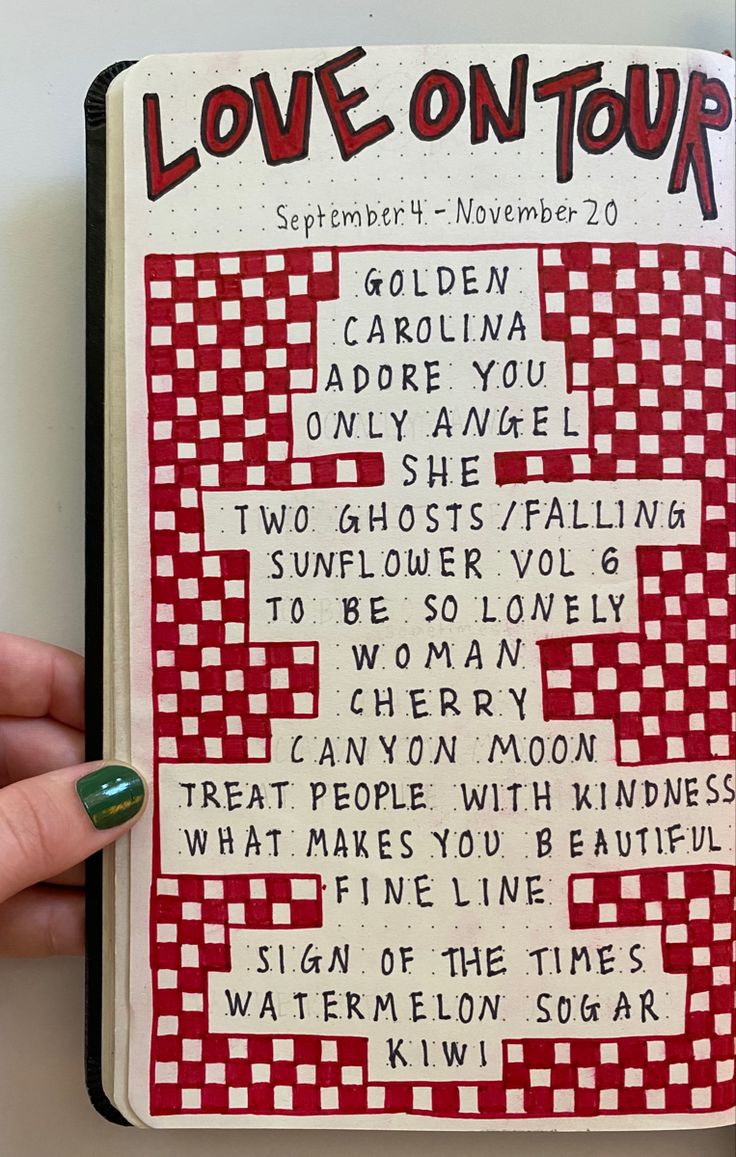 LOVE ON TOUR
September 4 - November 20
GOLDEN
CAROLINA
ADORE YOU
ONLY ANGEL
SHE
TWO GHOSTS /FALLING
SUNFLOWER VOL 6
TO BE SO LONELY
WOMAN
CHERRY
CANYON MOON
TREAT PEOPLE WITH KINDNESS
WHAT MAKES YOU BEAUTIFUL
FINE LINE
SIGN OF THE TIMES
WATERMELON SOGAR
KIWI